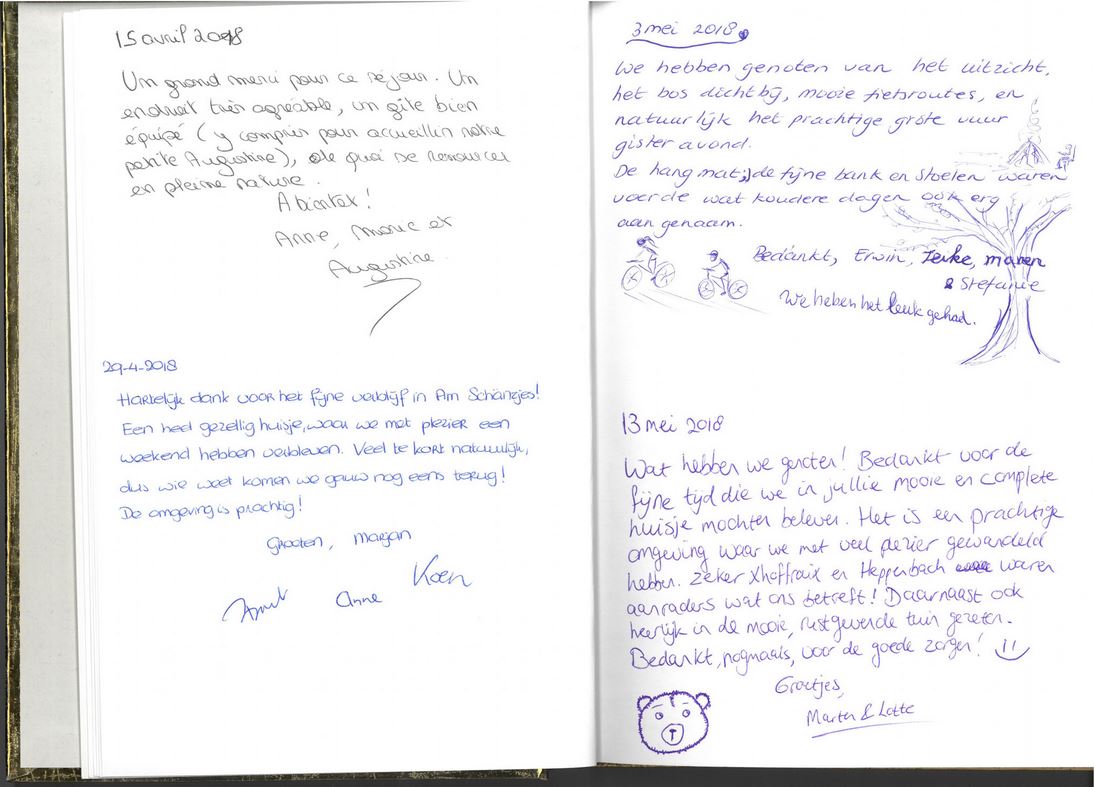 15 avril 2018
Un grand merci pour ce séjour. Un
endroit très agréable, un gîte bien
équipé (y compris pour accueillir notre
petite Augustine), de quoi se ressourcer
en pleine nature.
A bientôt!
Anne, Marie et
Augustine.
29-4-2018
Hartelijk dank voor het fijne verblijf in Am Schänzjes!
Een heel gezellig huisje, waar we met plezier een
weekend hebben verbleven. Veel te kort natuurlijk,
dus wie weet komen we gauw nog eens terug!
De omgeving is prachtig!
Groeten, Marjan
Koen
Anne
3 mei 2018
We hebben genoten van het uitzicht,
het bos dichtbij, mooie fietsroutes, en
natuurlijk het prachtige grote vuur
gister avond.
De hang mat, de fijne bank en stoelen waren
voor de wat koudere dagen ook erg
aan genaam.
Bedankt, Erwin, Jenke, maren
& Stefanie
We heben het leuk gehad.
13 mei 2018
Wat hebben we genoten! Bedankt voor de
fijne tijd die we in jullie mooie en complete
huisje mochten beleven. Het is een prachtige
omgeving waar we met veel plezier gewandeld
hebben. Zeker Xhoffraix en Heppenbach waren
aanraders wat ons betreft! Daarnaast ook
heerlijk in de mooie, rustgevende tuin gezeten.
Bedankt, nogmaals, voor de goede zorgen!
Groetjes,
Marten & Lotte